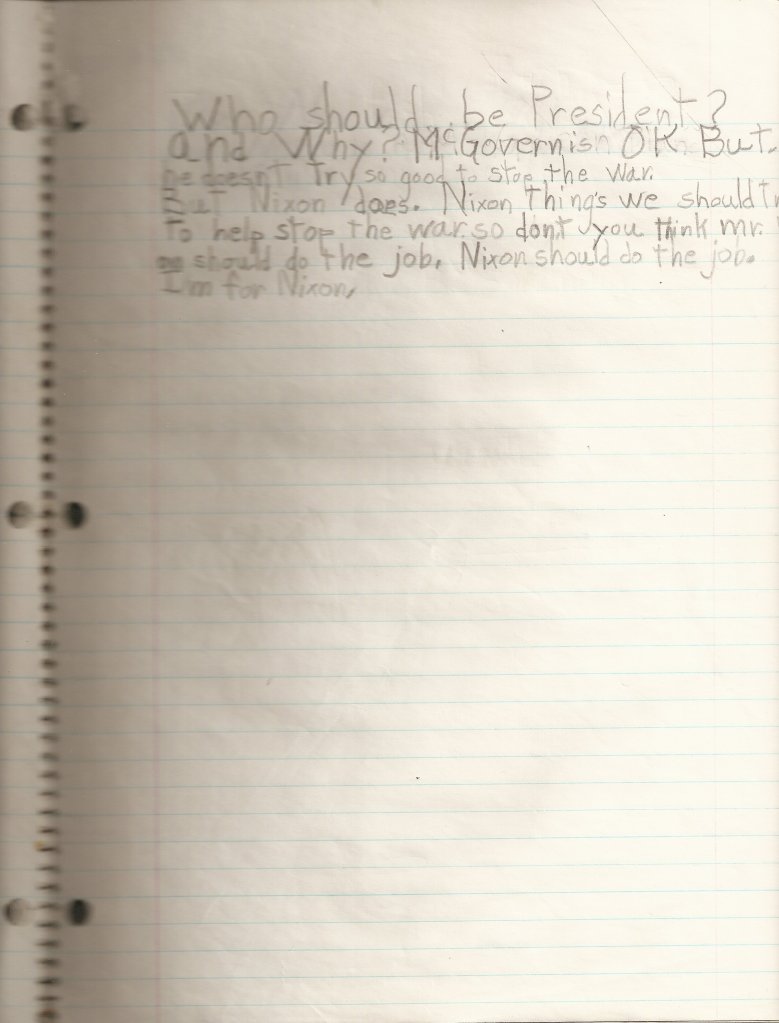 Who should be President?
and Why? McGovern is OK. But.
he doesn't Try so good to stop the war.
But Nixon does. Nixon thing's we should
To help stop the war. so dont you think mr.
should do the job, Nixon should do the job.
I'm for Nixon,